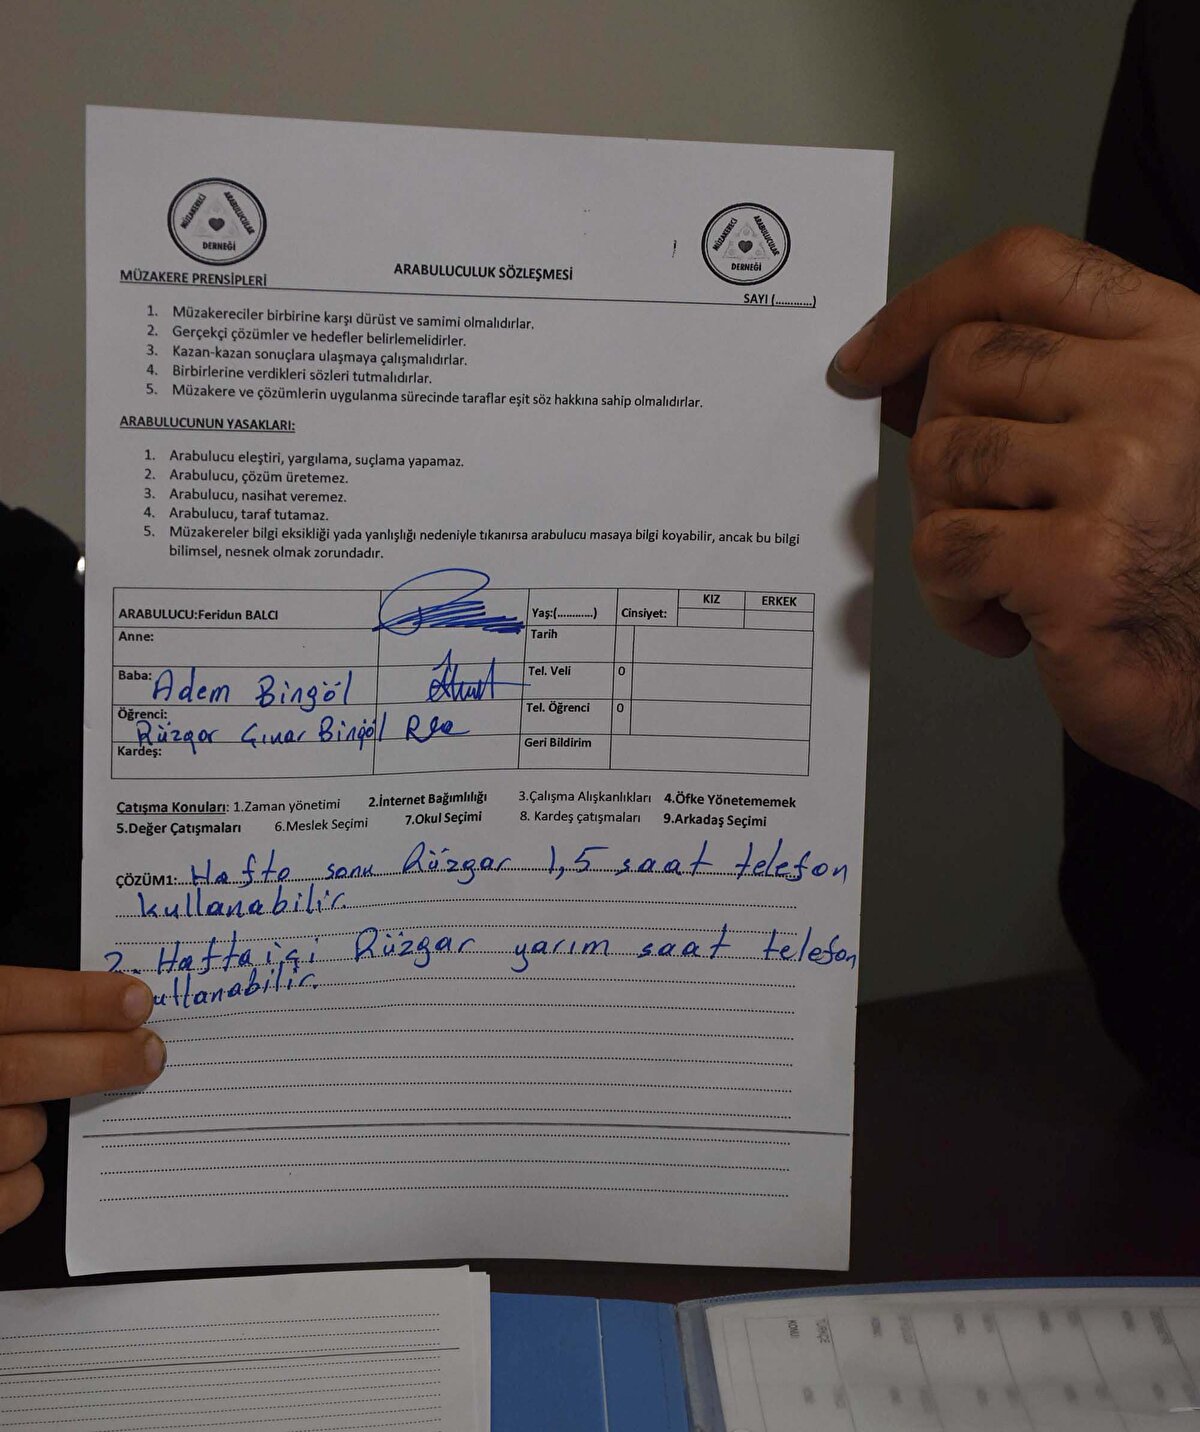 MÜZAKERECİ ARABULUCULAR DERNEĞİ
MÜZAKERECİ ARABULUCULAR DERNEĞİ
MÜZAKERE PRENSİPLERİ
ARABULUCULUK SÖZLEŞMESİ
SAYI (............)
1. Müzakereciler birbirine karşı dürüst ve samimi olmalıdırlar.
2. Gerçekçi çözümler ve hedefler belirlemelidirler.
3. Kazan-kazan sonuçlara ulaşmaya çalışmalıdırlar.
4. Birbirlerine verdikleri sözleri tutmalıdırlar.
5. Müzakere ve çözümlerin uygulanma sürecinde taraflar eşit söz hakkına sahip olmalıdırlar.
ARABULUCUNUN YASAKLARI:
1. Arabulucu eleştiri, yargılama, suçlama yapamaz.
2. Arabulucu, çözüm üretemez.
3. Arabulucu, nasihat veremez.
4. Arabulucu, taraf tutamaz.
5. Müzakereler bilgi eksikliği yada yanlışlığı nedeniyle tıkanırsa arabulucu masaya bilgi koyabilir, ancak bu bilgi
bilimsel, nesnek olmak zorundadır.
ARABULUCU:Feridun BALCI Yaş:(............) Cinsiyet: KIZ ERKEK
Anne: Tarih
Baba: Adem Bingöl Tel. Veli 0
Öğrenci: Rüzgar Çınar Bingöl Tel. Öğrenci 0
Kardeş: Geri Bildirim
Çatışma Konuları: 1.Zaman yönetimi 2.İnternet Bağımlılığı 3.Çalışma Alışkanlıkları 4.Öfke Yönetememek
5.Değer Çatışmaları 6.Meslek Seçimi 7.Okul Seçimi 8. Kardeş çatışmaları 9.Arkadaş Seçimi
ÇÖZÜM1: Hafta sonu Rüzgar 1,5 saat telefon
kullanabilir.
2. Hafta içi Rüzgar yarım saat telefon
kullanabilir.